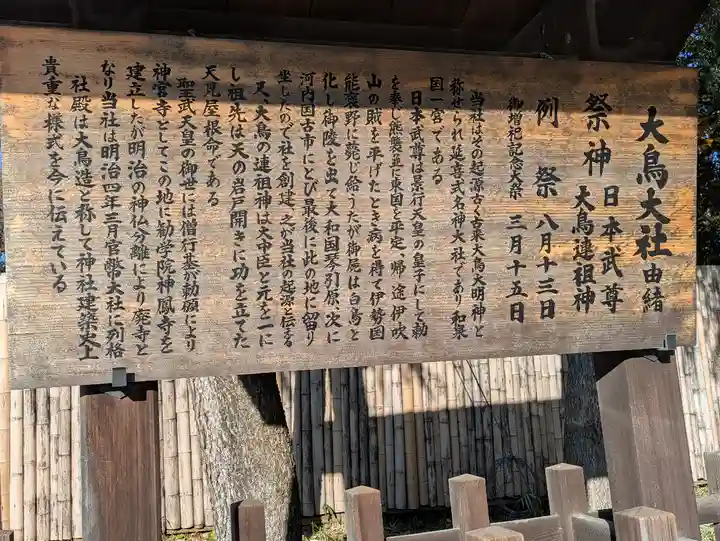 大鳥大社由緒
祭神 日本武尊
大鳥連祖神
例祭 八月十三日
御増祀記念大祭 三月十五日
当社はその起源古く古来大鳥大明神と
称せられ延喜式名神大社であり和泉
国一宮である
日本武尊は景行天皇の皇子にして勅
を奉し熊襲並に東国を平定、帰途伊吹
山の賊を平げたとき病を得て伊勢国
能褒野に薨じ給うたが御屍は白鳥と
化し御陵を出て大和国琴引原、次に
河内国古市にとび最後に此の地に留り
坐したので社を創建、之が当社の起源と伝る
又、大鳥の連祖神は大中臣と元を一に
し祖先は天の岩戸開きに功を立てた
天児屋根命である
聖武天皇の御世には僧行基が勅願により
神宮寺としてこの地に勧学院神鳳寺を
建立したが明治の神仏分離により廃寺と
なり当社は明治四年三月官幣大社に列格
社殿は大鳥造と称して神社建築史上
貴重な様式を今に伝えている